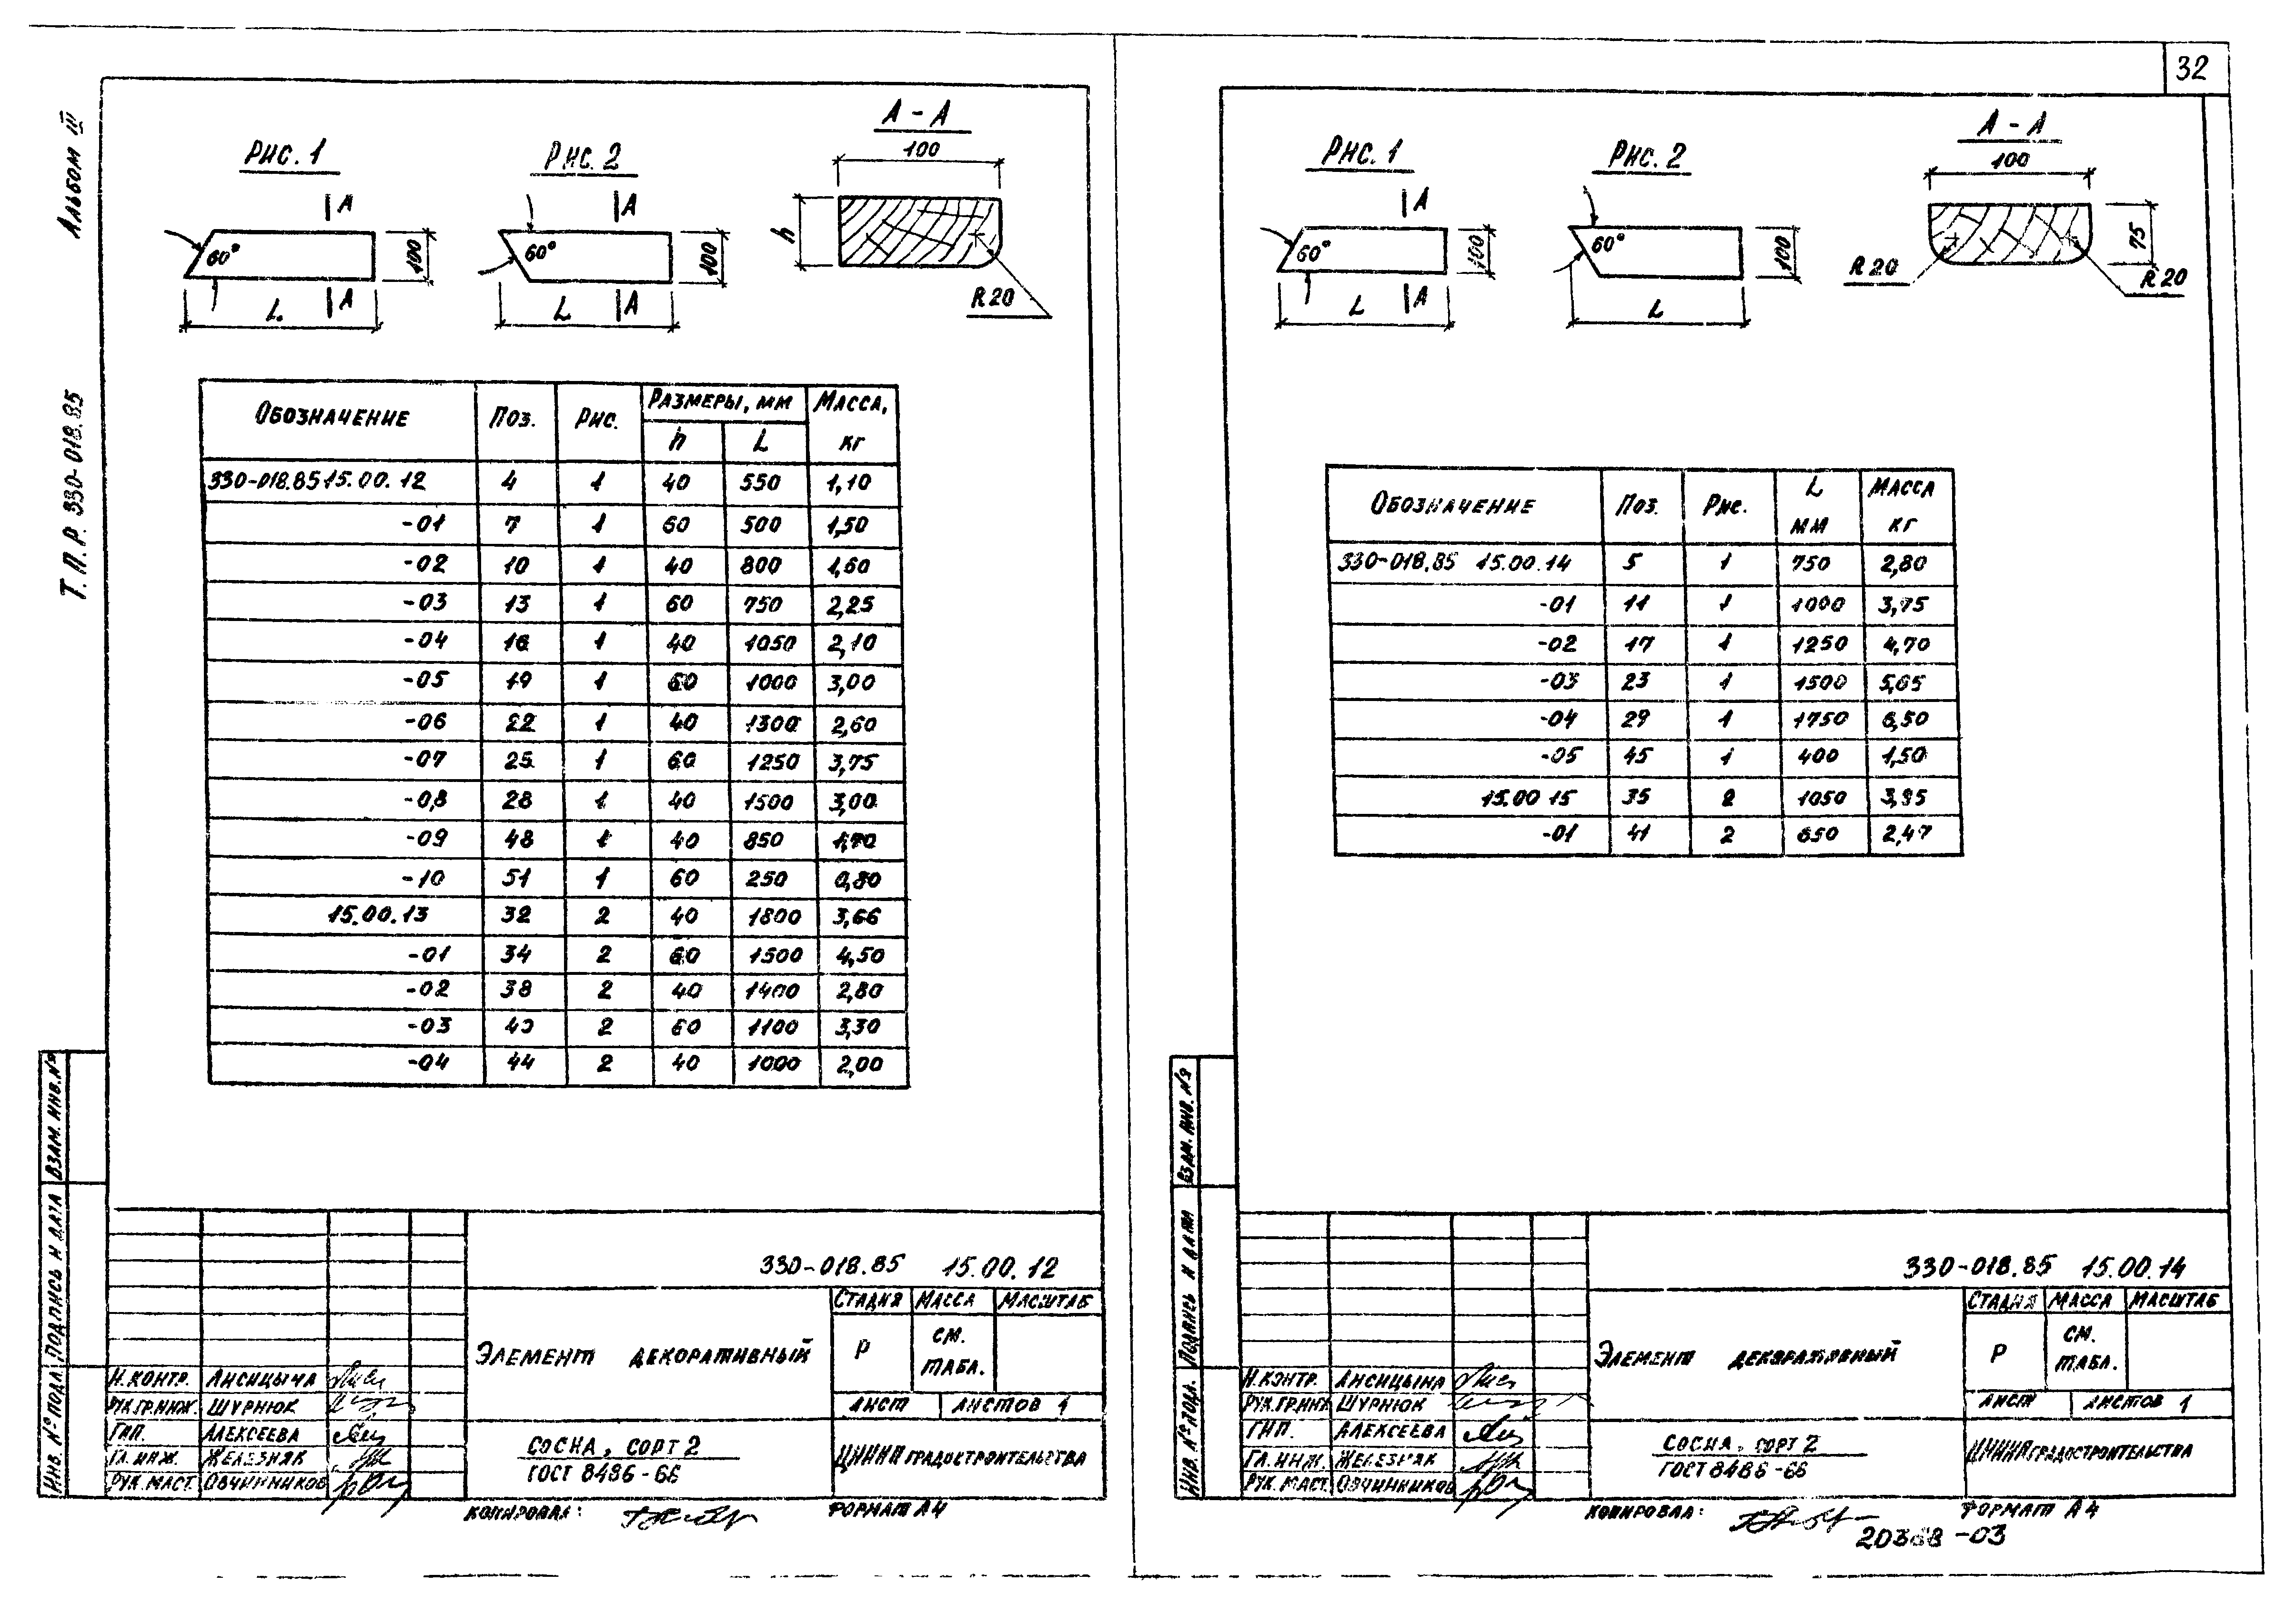 32
Альбом III
Т. П. Р. 330-018.85
Рис. 1
Рис. 2
А - А
А
А
60°
100
L
А
А
60°
100
L
100
h
R 20
Обозначение Поз. Рис. Размеры, мм Масса, кг
h L
330-018.85 15.00.12 4 1 40 550 1,10
-01 7 1 60 500 1,50
-02 10 1 40 800 1,60
-03 13 1 60 750 2,25
-04 16 1 40 1050 2,10
-05 19 1 60 1000 3,00
-06 22 1 40 1300 2,60
-07 25 1 60 1250 3,75
-08 28 1 40 1500 3,00
-09 48 1 40 850 1,70
-10 51 1 60 250 0,80
15.00.13 32 2 40 1800 3,66
-01 34 2 60 1500 4,50
-02 38 2 40 1400 2,80
-03 40 2 60 1100 3,30
-04 44 2 40 1000 2,00
Инв. № подл. Подпись и дата Взам. инв. №
330-018.85 15.00.12
Элемент декоративный
Стадия Масса Масштаб
Р см. табл.
Лист Листов 1
Н.контр. Лисицына
Рук.гр.инж. Шурнюк
ГИП. Алексеева
Гл. инж. Железняк
Рук. маст. Овчинников
Сосна, сорт 2
ГОСТ 8486-66
ЦНИИПградостроительства
Копировал:
Формат А4
Рис. 1
Рис. 2
А - А
А
60°
100
L
А
60°
100
L
100
75
R 20
R 20
Обозначение Поз. Рис. L мм Масса кг
330-018.85 15.00.14 5 1 750 2,80
-01 11 1 1000 3,75
-02 17 1 1250 4,70
-03 23 1 1500 5,65
-04 29 1 1750 6,50
-05 45 1 400 1,50
15.00 15 35 2 1050 3,95
-01 41 2 650 2,47
Инв. № подл. Подпись и дата Взам. инв. №
330-018.85 15.00.14
Элемент декоративный
Стадия Масса Масштаб
Р см. табл.
Лист Листов 1
Н.контр. Лисицына
Рук.гр.инж Шурнюк
ГИП. Алексеева
Гл. инж. Железняк
Рук. маст. Овчинников
Сосна, сорт 2
ГОСТ 8486-66
ЦНИИПградостроительства
Копировал:
Формат А4
20388-03